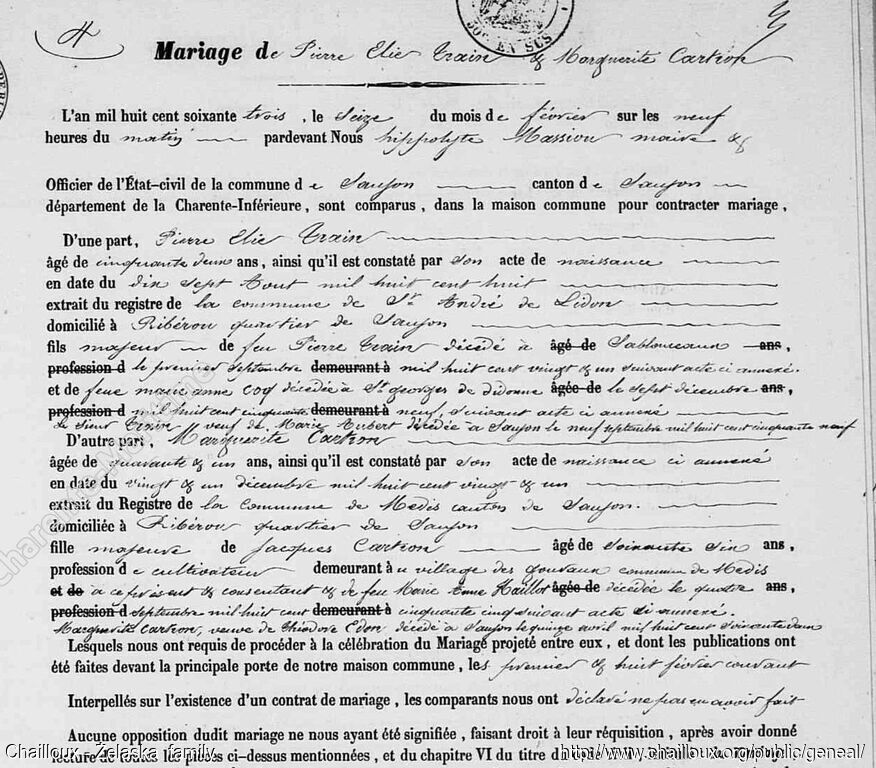 4
50c EN SUS
Mariage de Pierre Elie Train & Marguerite Cartron
L'an mil huit cent soixante trois, le seize du mois de février sur les neuf
heures du matin pardevant Nous hippolyte Massiou maire &
Officier de l'État-civil de la commune de Saujon canton de Saujon
département de la Charente-Inférieure, sont comparus, dans la maison commune pour contracter mariage,
D'une part, Pierre Elie Train
âgé de cinquante deux ans, ainsi qu'il est constaté par son acte de naissance
en date du dix sept Aout mil huit cent huit
extrait du registre de la commune de St André de Lidon
domicilié à Ribérou quartier de Saujon
fils majeur de feu Pierre Train décédé à âgé de Sablonceaux ans,
profession d le premier septembre demeurant à mil huit cent vingt & un suivant acte ci annexé.
et de feue marianne coq décédée à St georges de didonne âgée de le sept décembre ans,
profession d mil huit cent cinquante demeurant à neuf, suivant acte ci annexé
Le Sieur Train veuf de Marie Aubert décédée à Saujon le neuf septembre mil huit cent cinquante neuf
D'autre part, Marguerite Cartron
âgée de quarante & un ans, ainsi qu'il est constaté par son acte de naissance ci annexé
en date du vingt & un décembre mil huit cent vingt & un
extrait du Registre de la commune de Medis canton de Saujon.
domiciliée à Ribérou quartier de Saujon
fille majeure de Jacques Cartron âgé de soixante six ans,
profession de cultivateur demeurant au village des commune de Medis
et de à ce présent & consentant & de feu Marie Anne Maillot âgée de décédée le quatre ans,
profession d septembre mil huit cent demeurant à cinquante cinq suivant acte ci annexé.
Marguerite Cartron, veuve de Théodore Edon décédé à Saujon le quinze avril mil huit cent soixante deux
Lesquels nous ont requis de procéder à la célébration du Mariage projeté entre eux, et dont les publications ont
été faites devant la principale porte de notre maison commune, les premier & huit février courant
Interpellés sur l'existence d'un contrat de mariage, les comparants nous ont déclaré ne pas en avoir fait
Aucune opposition dudit mariage ne nous ayant été signifiée, faisant droit à leur réquisition, après avoir donné
lecture de toutes les pièces ci-dessus mentionnées, et du chapitre VI du titre du
Chailloux - Zelaska family
http://www.chailloux.org/public/geneal/